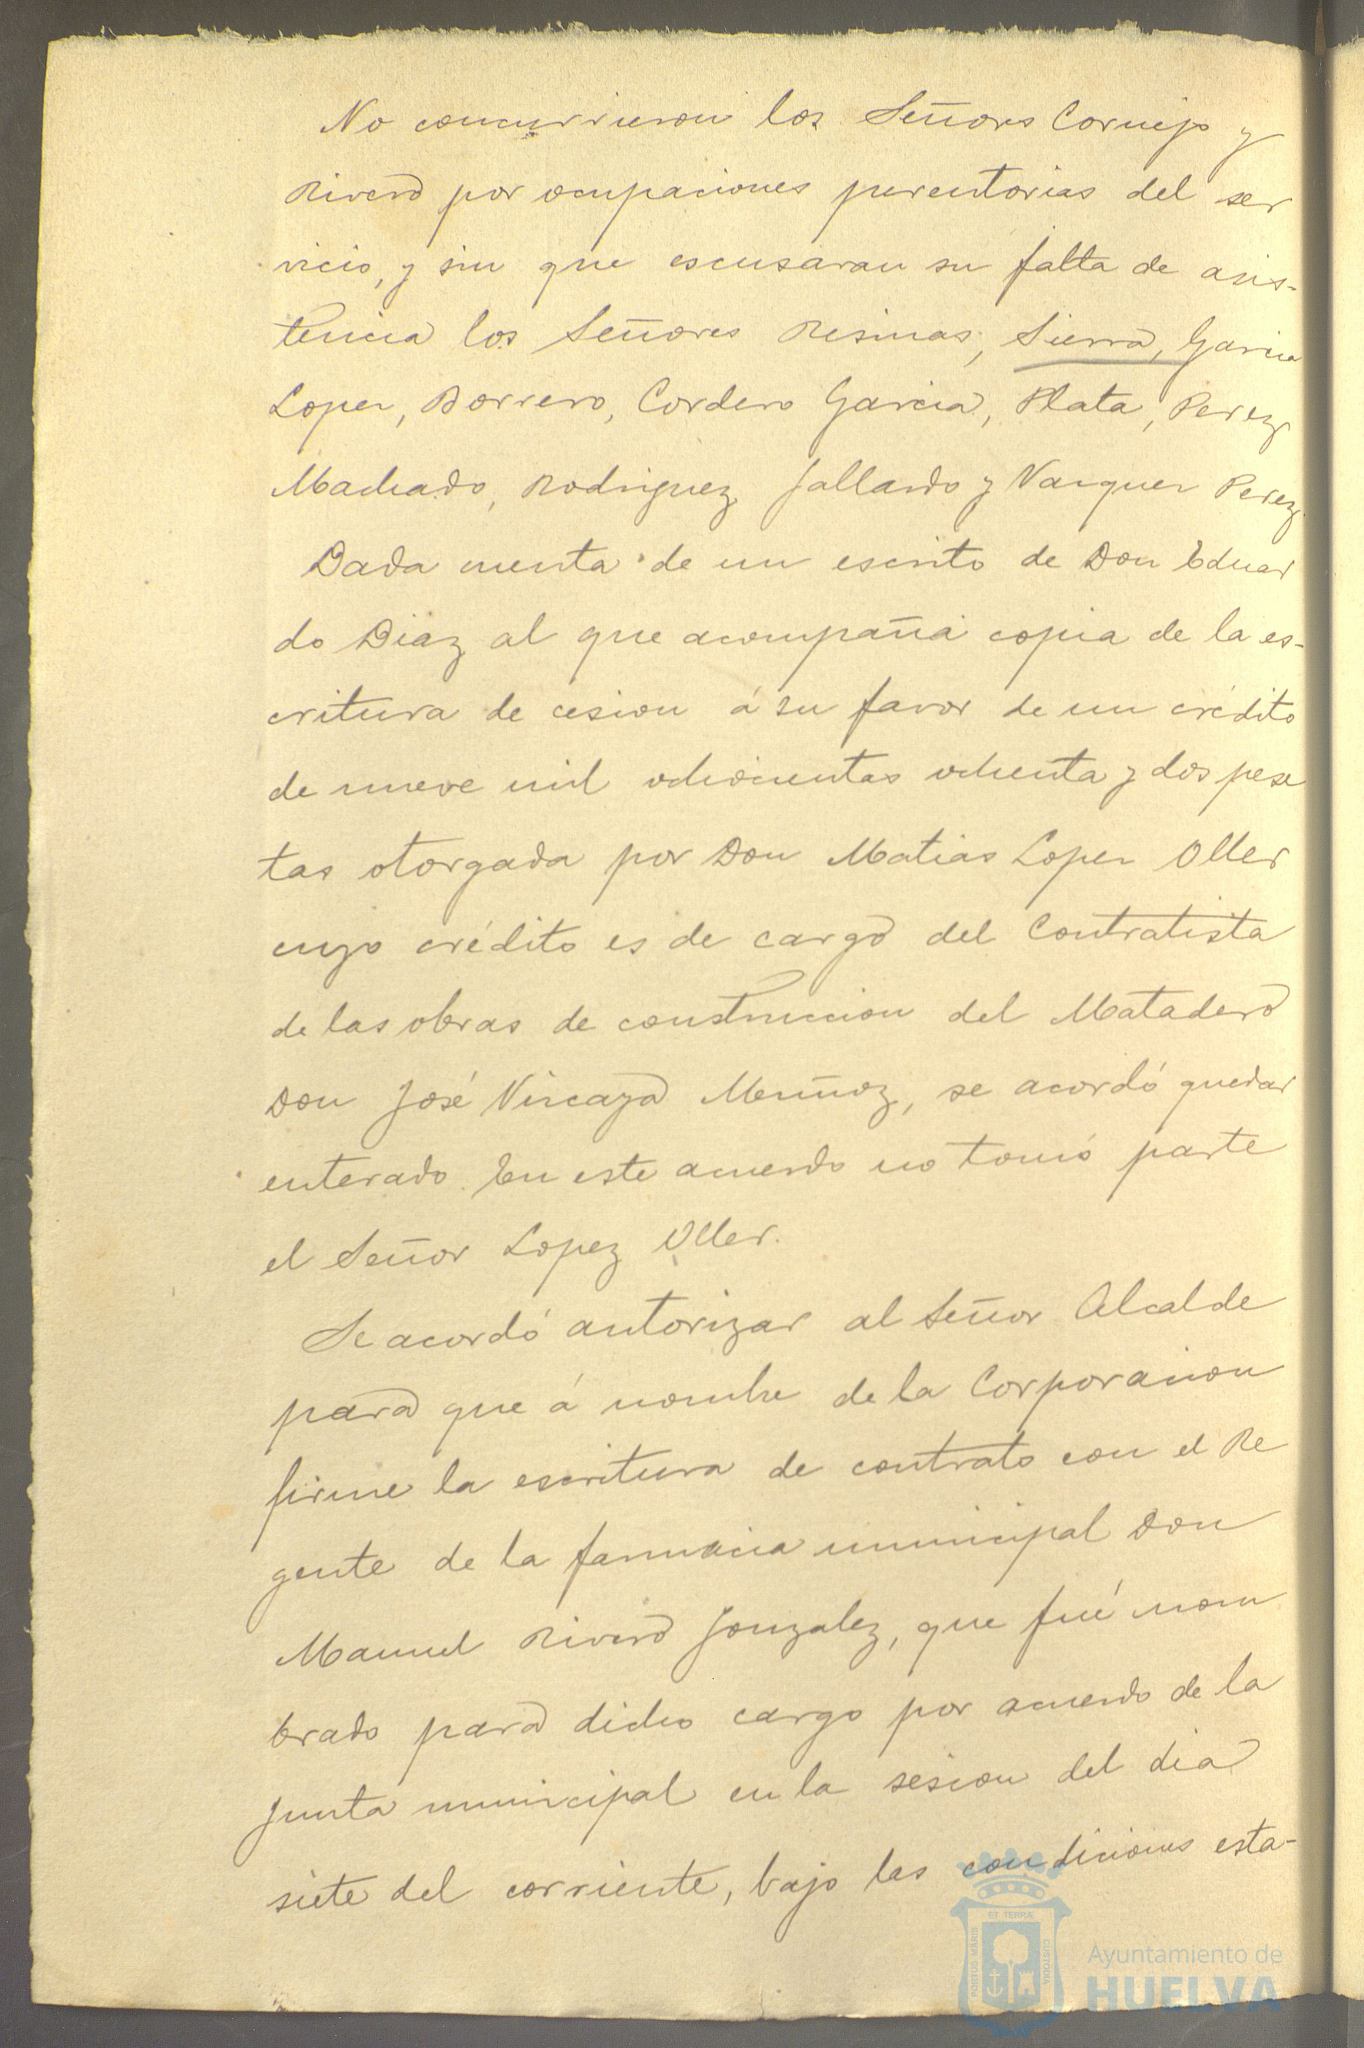 No concurrieron los Señores Cornejo y
Rivero por ocupaciones perentorias del ser
vicio, y sin que escusaran su falta de asis-
tencia los Señores Resinas, Sierra, Garcia
Lopez, Borrero, Cordero Garcia, Plata, Perez
Machado, Rodriguez Gallardo y Vazquez Perez
Dada cuenta de un escrito de Don Eduar
do Diaz al que acompaña copia de la es-
critura de cesion á su favor de un crédito
de nueve mil ochocientas ochenta y dos pese
tas otorgada por Don Matias Lopez Oller
cuyo crédito es de cargo del Contratista
de las obras de construccion del Matadero
Don José Vizcaya Muñoz, se acordó quedar
enterado. En este acuerdo no tomó parte
el Señor Lopez Oller.
Se acordó autorizar al Señor Alcalde
para que á nombre de la Corporacion
firme la escritura de contrato con el Re
gente de la farmacia municipal Don
Manuel Rivero Gonzalez, que fué nom
brado para dicho cargo por acuerdo de la
Junta municipal en la sesion del dia
siete del corriente, bajo las condiciones esta-
PORTUS MARIS ET TERRÆ CUSTODIA
Ayuntamiento de
HUELVA